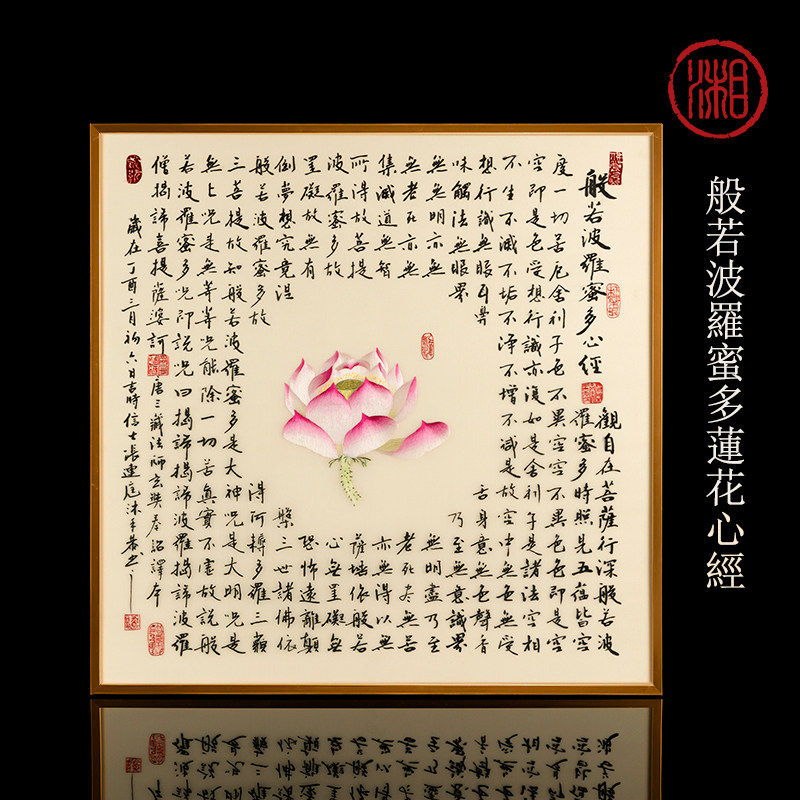 湘
般若波羅蜜多蓮花心經
般若波羅蜜多心經
觀自在菩薩行深般若波
羅蜜多時照見五蘊皆空
度一切苦厄舍利子色不異空空不異色色即是空
空即是色受想行識亦復如是舍利子是諸法空相
不生不滅不垢不淨不增不減是故空中無色無受
想行識無眼耳鼻
舌身意無色聲香
味觸法無眼界
乃至無意識界
無無明亦無
無明盡乃至
無老死亦無
老死盡無苦
集滅道無智
亦無得以無
所得故菩提
薩埵依般若
波羅蜜多故
心無罣礙無
罣礙故無有
恐怖遠離顛
倒夢想究竟涅
槃三世諸佛依
般若波羅蜜多故
得阿耨多羅三藐
三菩提故知般若波羅蜜多是大神咒是大明咒是
無上咒是無等等咒能除一切苦真實不虛故說般
若波羅蜜多咒即說咒曰揭諦揭諦波羅揭諦波羅
僧揭諦菩提薩婆訶
唐三藏法師玄奘奉詔譯本
歲在丁酉三月初六日吉時信士張庭沐手恭書